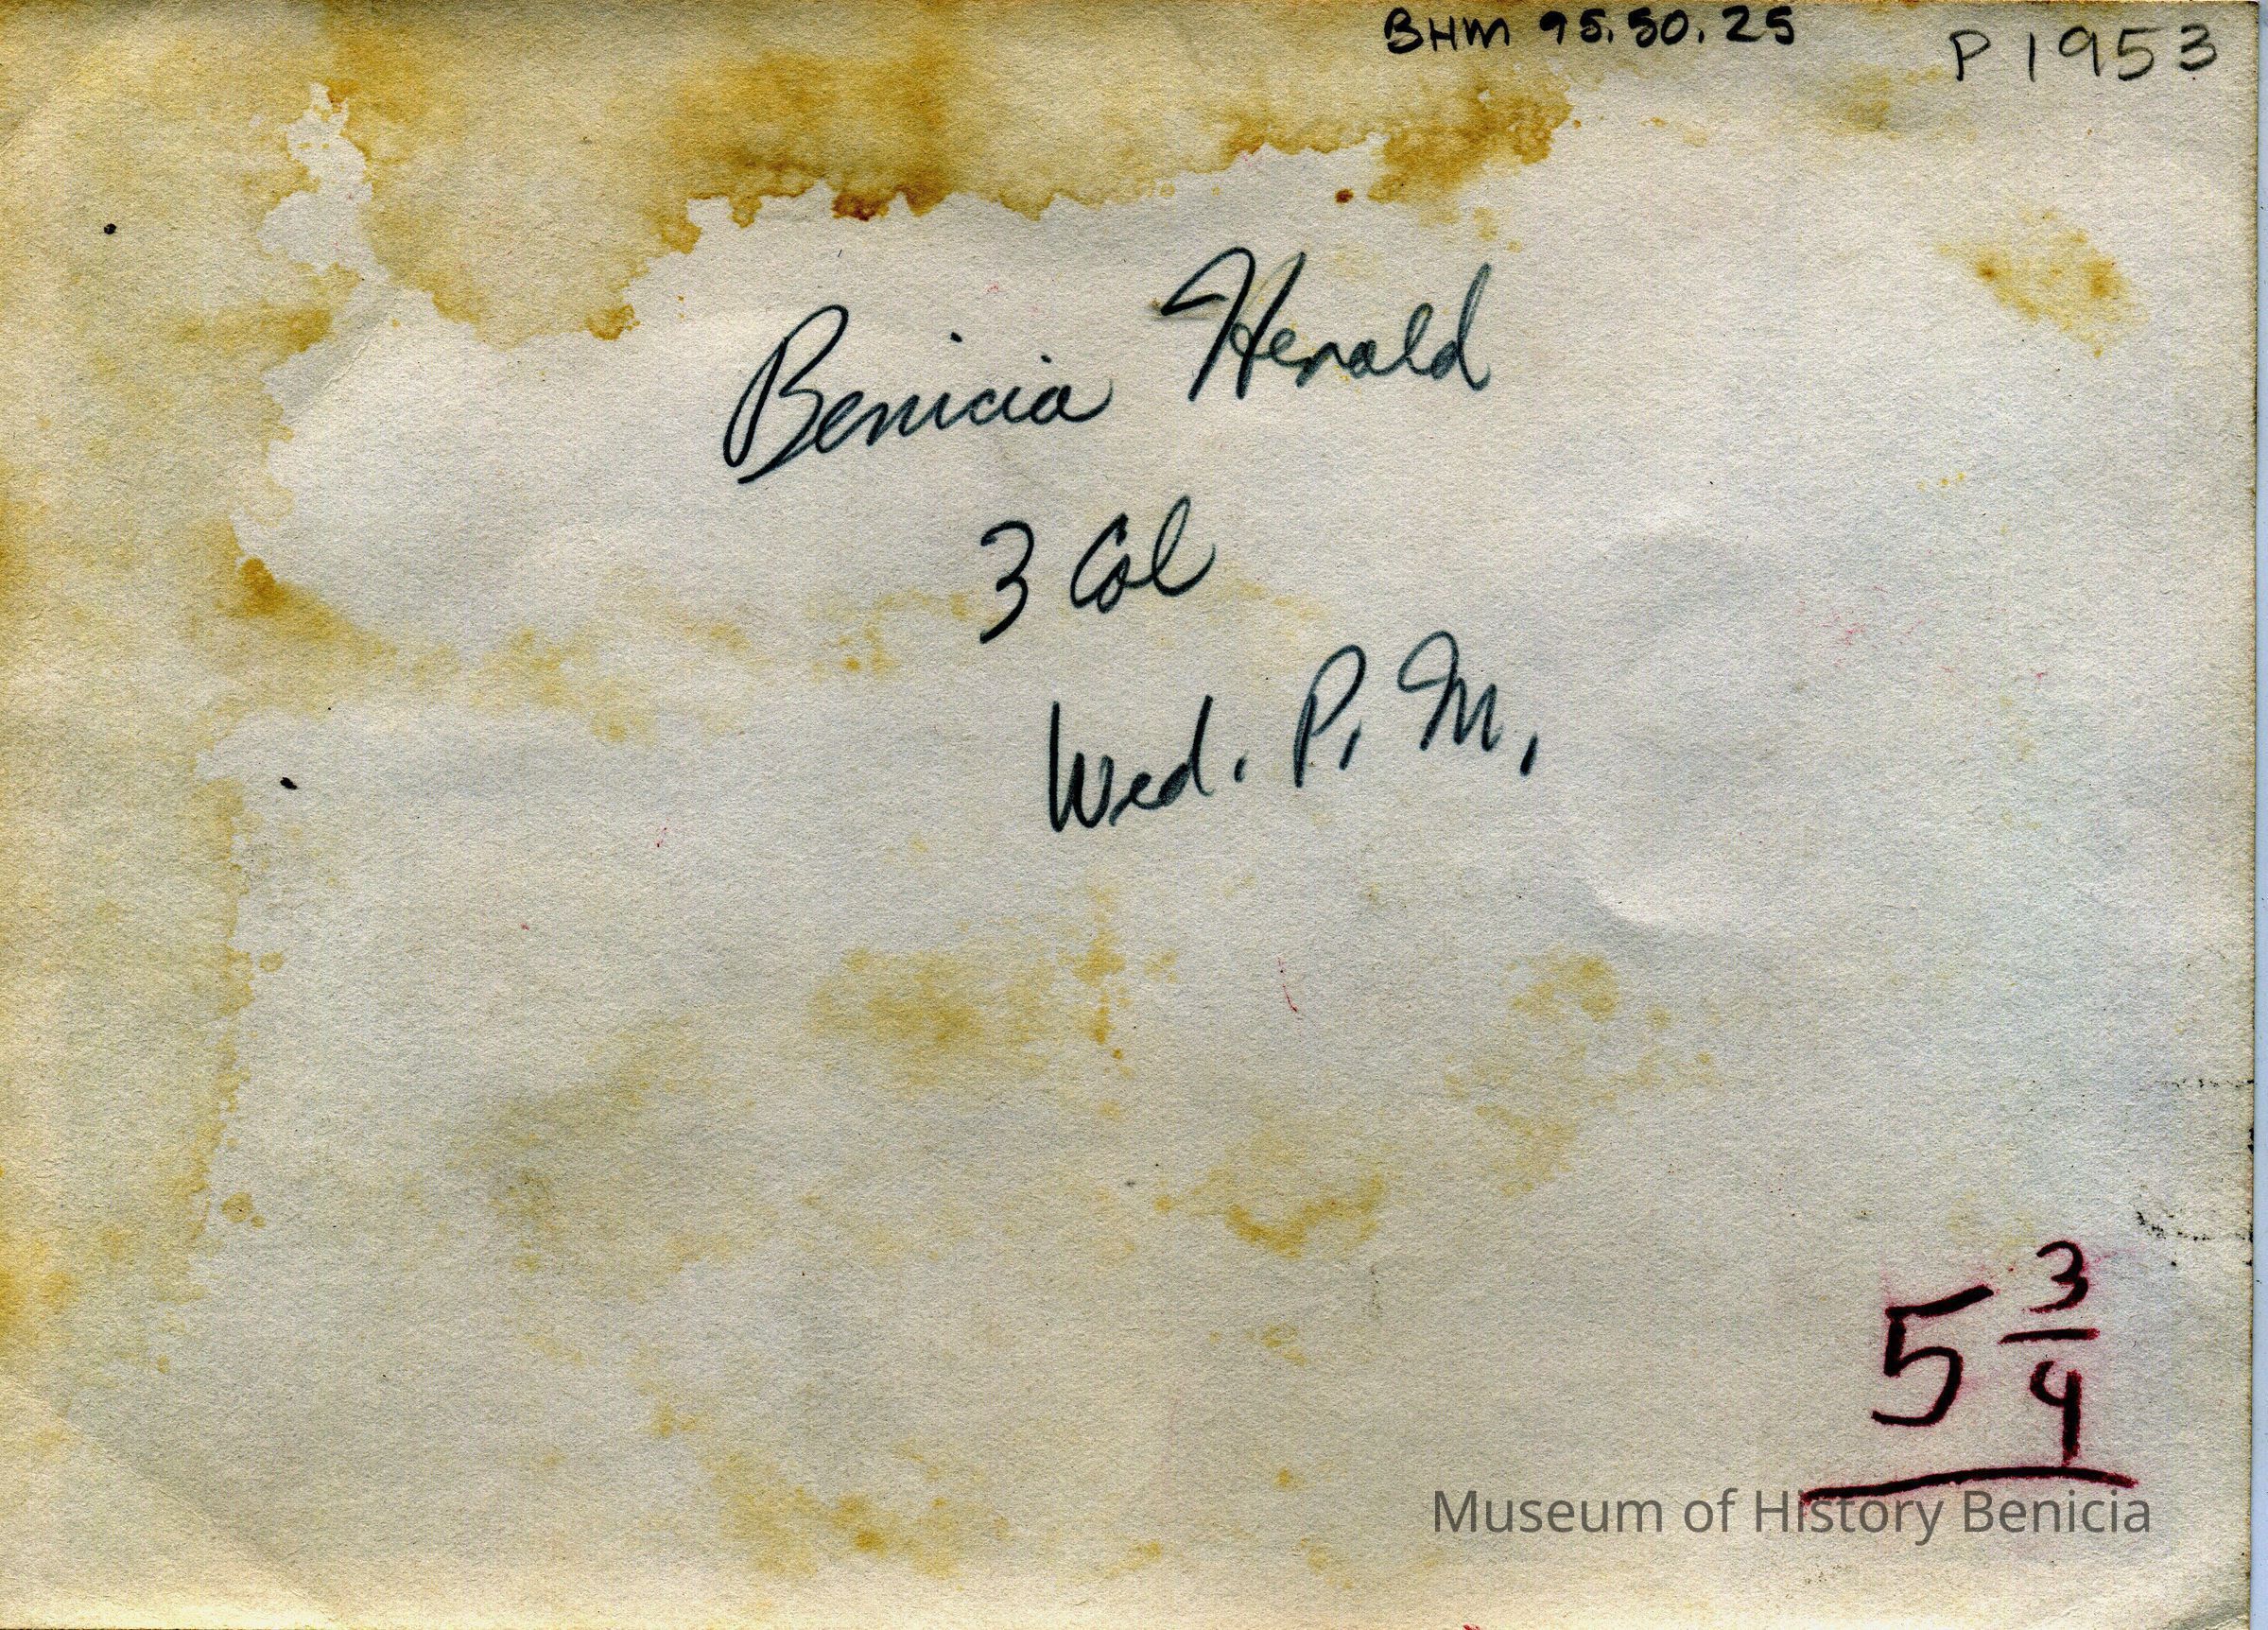 BHM 95.50.25 P1953
Benicia Herald
3 Col
Wed. P. M.
5 3/4
Museum of History Benicia